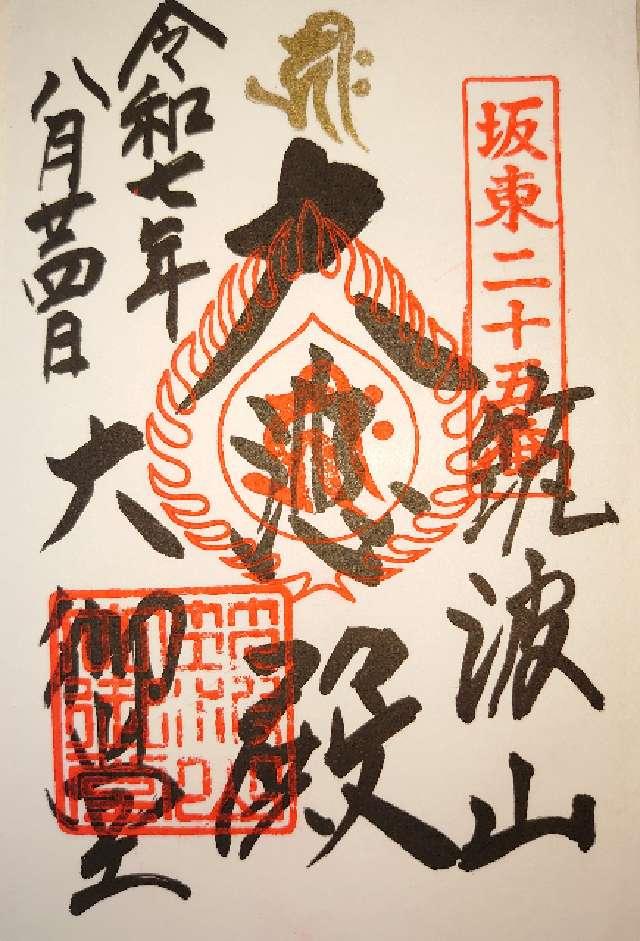 坂東二十五番
筑波山
大悲殿
大御堂
令和七年
八月廿四日